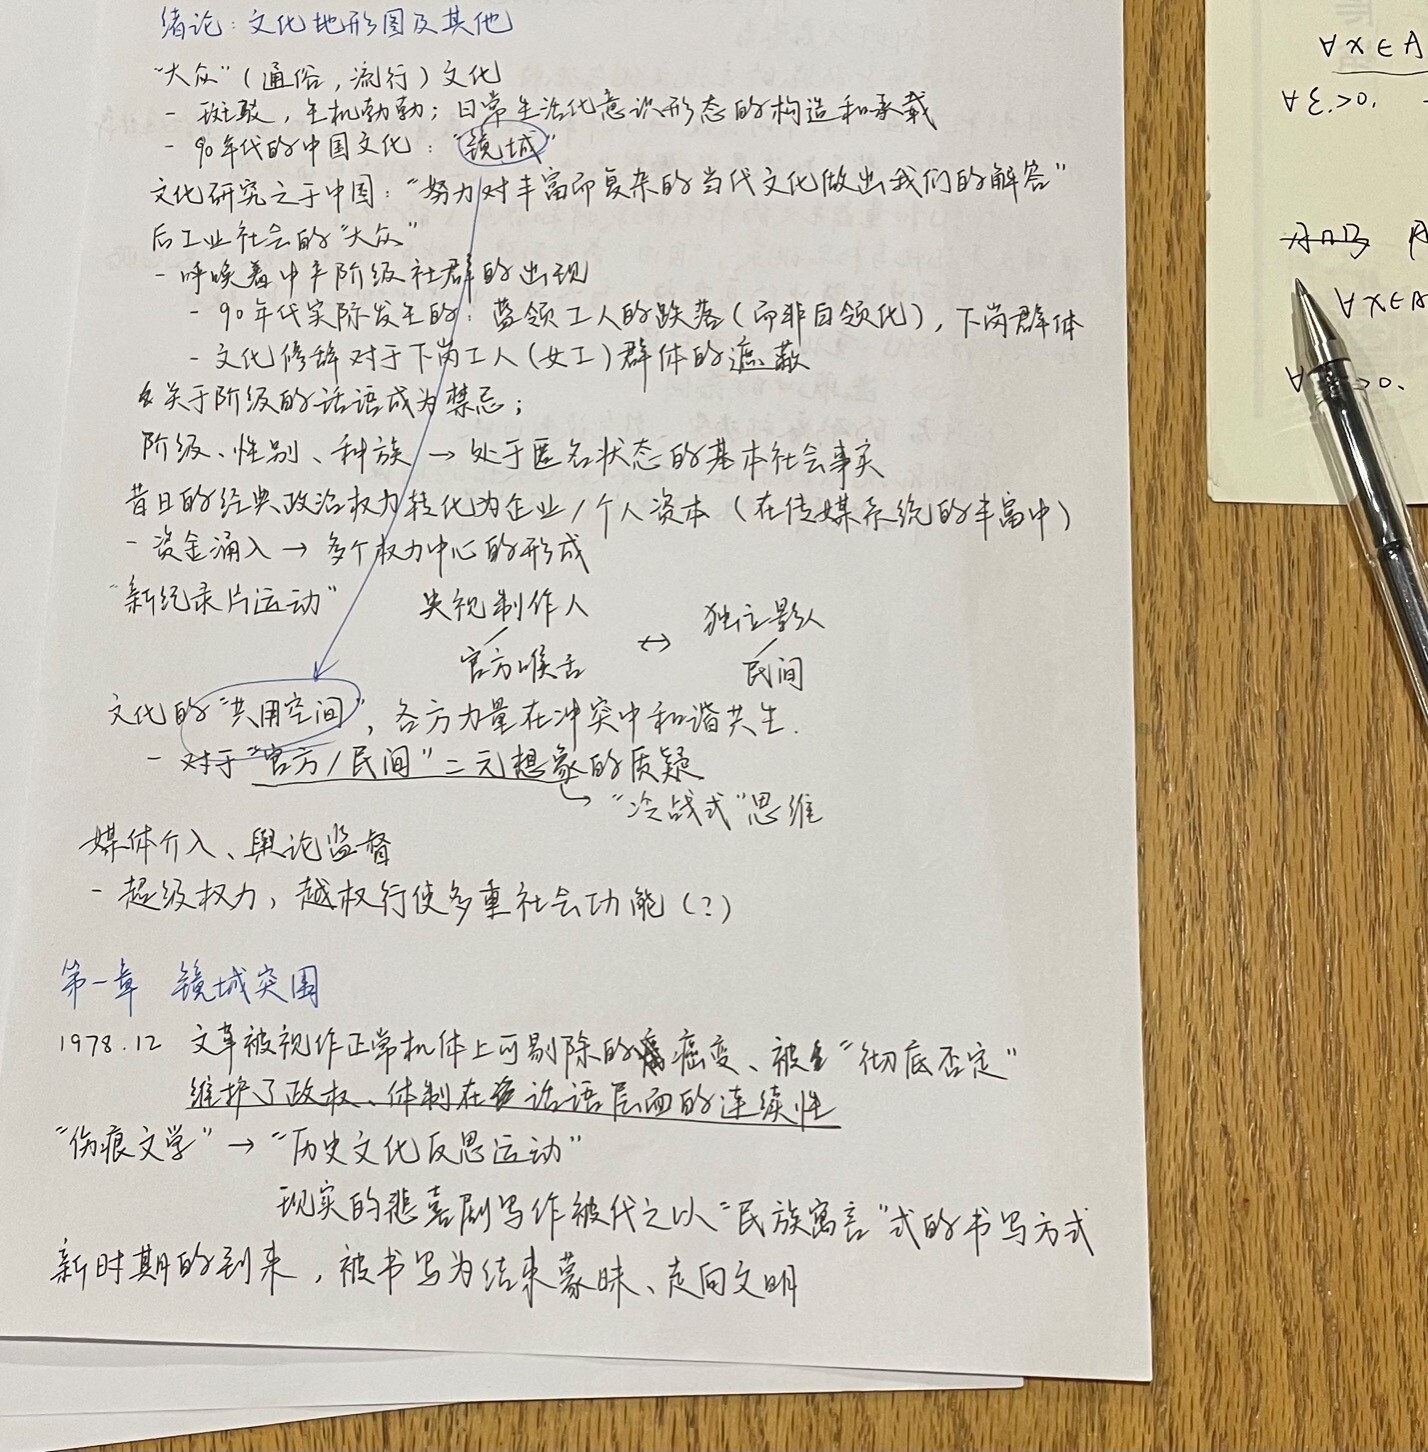 绪论：文化地形图及其他
“大众”（通俗，流行）文化
- 斑驳，生机勃勃；日常生活化意识形态的构造和承载
- 90年代的中国文化：“镜城”
文化研究之于中国：“努力对丰富而复杂的当代文化做出我们的解答”
后工业社会的“大众”
- 呼唤着中产阶级社群的出现
- 90年代实际发生的：蓝领工人的跌落（而非白领化），下岗群体
- 文化修辞对于下岗工人（女工）群体的遮蔽
关于阶级的话语成为禁忌；
阶级、性别、种族 → 处于匿名状态的基本社会事实
昔日的经典政治权力转化为企业/个人资本（在传媒系统的丰富中）
- 资金涌入 → 多个权力中心的形成
“新纪录片运动” 央视制作人 ↔ 独立影人
官方喉舌 民间
文化的“共用空间”，各方力量在冲突中和谐共生.
- 对于“官方/民间”二元想象的质疑
↳ “冷战式”思维
媒体介入、舆论监督
- 超级权力，越权行使多重社会功能（？）
第一章 镜城突围
1978.12 文革被视作正常机体上可剔除的癌变、被“彻底否定”
维护了政权、体制在话语层面的连续性
“伤痕文学” → “历史文化反思运动”
现实的悲喜剧写作被代之以“民族寓言”式的书写方式
新时期的到来，被书写为结束蒙昧、走向文明
∀x∈A
∀ε>0.
A∩B
∀x∈A
>0.